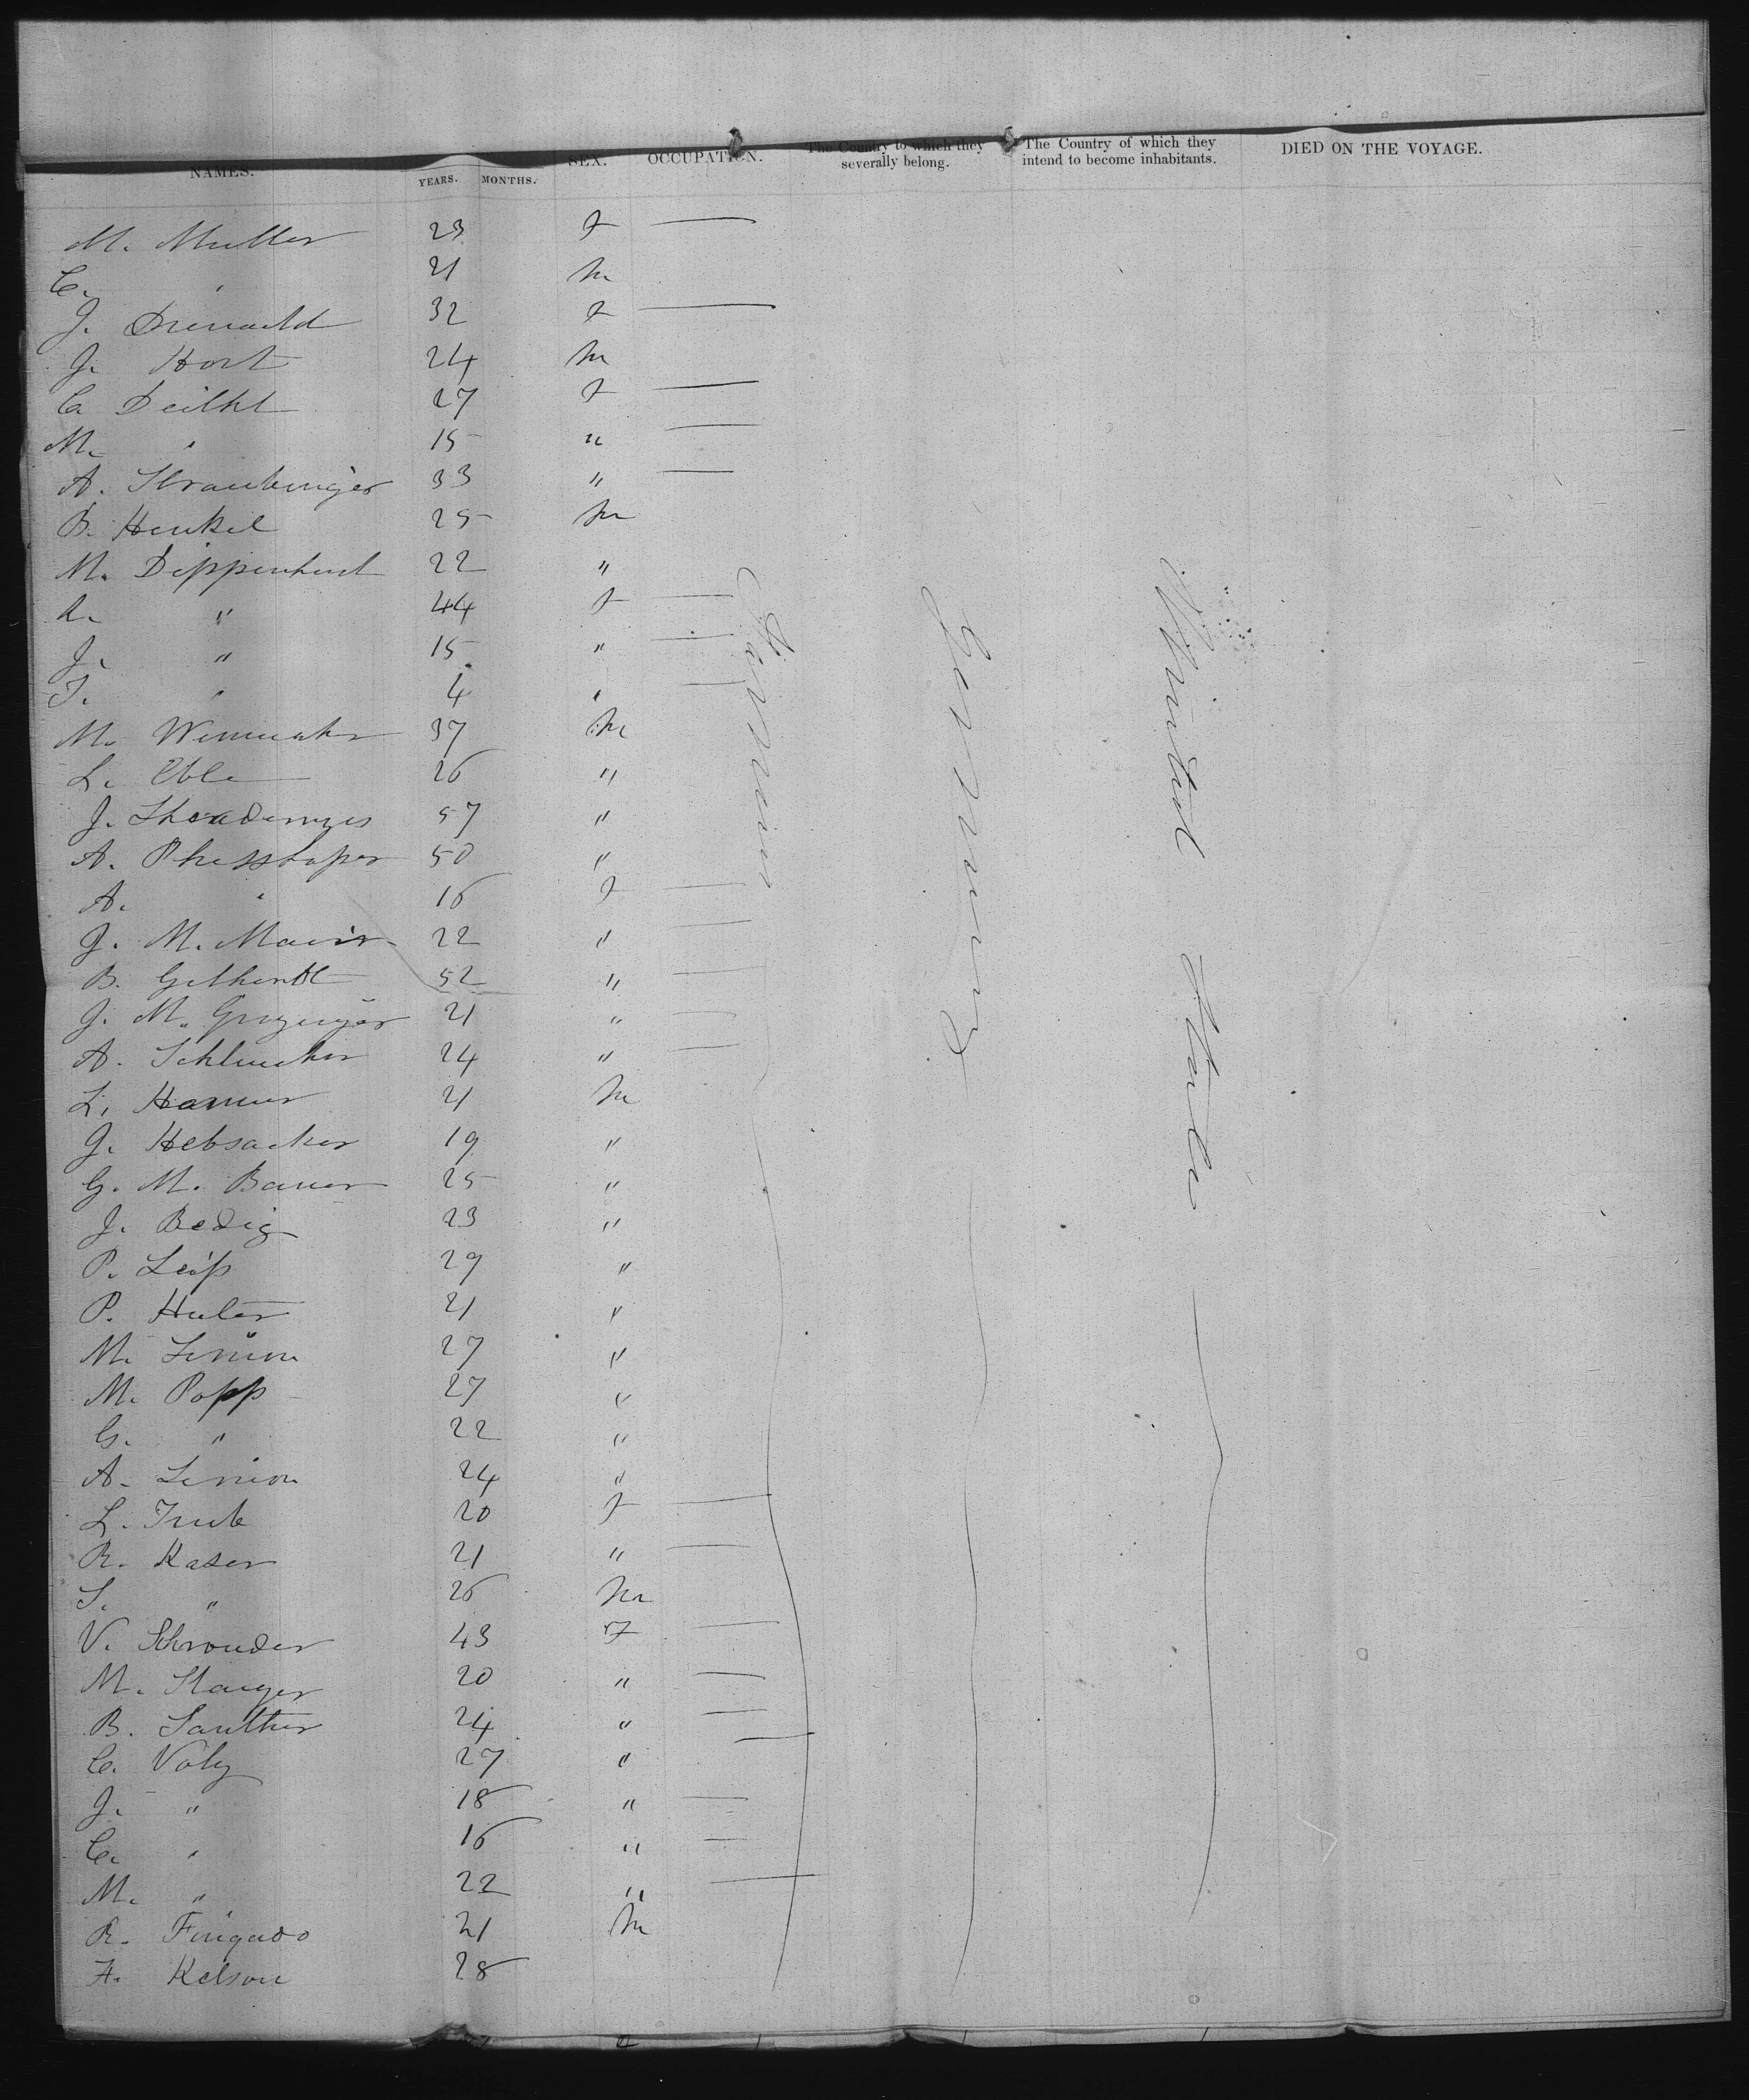 NAMES. YEARS. MONTHS. SEX. OCCUPATION. The Country to which they severally belong. The Country of which they intend to become inhabitants. DIED ON THE VOYAGE.
M. Muller 23 f —
C. " 21 m
J. 32 f —
J. Hort 24 m
C. 27 f —
M. " 15 " —
A. Straubinger 33 " —
B. Henkel 25 m
M. 22 "
R. " 44 f —
J. " 15 " —
T. " 4 " —
M. 37 m
L. Eble 26 "
J. 57 "
A. 50 "
A. " 16 f —
J. M. Maier 22 " —
B. 52 " —
J. M. 21 " —
A. 24 " —
L. Hammer 21 m
J. Hebsacker 19 "
G. M. Bauer 25 "
J. Bedig 23 "
P. 29 "
P. Huber 21 "
M. 27 "
M. Popp 27 "
G. " 22 "
A. 24 "
L. 20 f —
R. Kaser 21 " —
S. " 26 m
V. Schrouder 43 f —
M. Stanger 20 " —
B. Sauther 24 " —
C. Volz 27 " —
J. " 18 " —
C. " 16 " —
M. " 22 " —
R. Fingado 21 m
F. Kelson 28
Farmers
Germany
United States